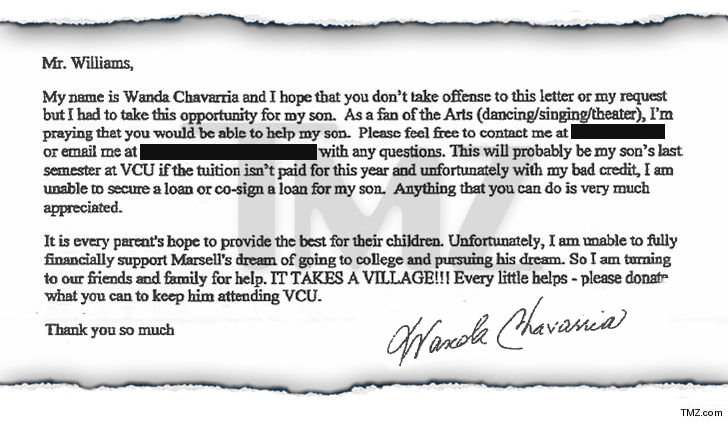 Mr. Williams,
My name is Wanda Chavarria and I hope that you don't take offense to this letter or my request
but I had to take this opportunity for my son. As a fan of the Arts (dancing/singing/theater), I'm
praying that you would be able to help my son. Please feel free to contact me at
or email me at with any questions. This will probably be my son's last
semester at VCU if the tuition isn't paid for this year and unfortunately with my bad credit, I am
unable to secure a loan or co-sign a loan for my son. Anything that you can do is very much
appreciated.
It is every parent's hope to provide the best for their children. Unfortunately, I am unable to fully
financially support Marsell's dream of going to college and pursuing his dream. So I am turning
to our friends and family for help. IT TAKES A VILLAGE!!! Every little helps - please donate
what you can to keep him attending VCU.
Thank you so much
Wanda Chavarria
TMZ
TMZ.com